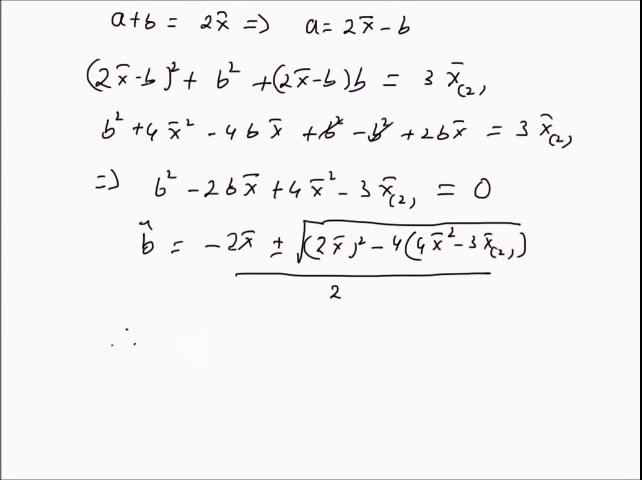 a+b = 2x̄ => a = 2x̄ - b
(2x̄-b)² + b² + (2x̄-b)b = 3x̄₍₂,
b² + 4x̄² - 4bx̄ + b² - b² + 2bx̄ = 3x̄₍₂,
=> b² - 2bx̄ + 4x̄² - 3x̄₍₂, = 0
b̂ = (-2x̄ ± √((2x̄)² - 4(4x̄² - 3x̄₍₂,)))/2
∴